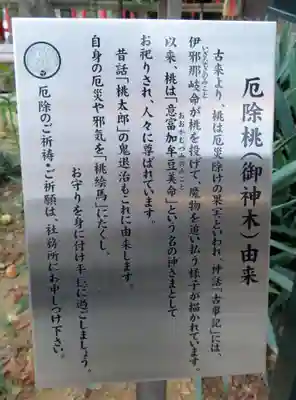 厄除桃(御神木)由来
古来より、桃は厄災除けの果実といわれ、神話「古事記」には、
伊邪那岐命が桃を投げて、魔物を追い払う様子が描かれています。
いざなぎのみこと
以来、桃は「意富加牟豆美命」という名の神さまとして
おおかむづみのみこと
お祀りされ、人々に尊ばれています。
昔話「桃太郎」の鬼退治もこれに由来します。
自身の厄災や邪気を「桃絵馬」にたくし、
お守りを身に付け平らに過ごしましょう。
厄除のご祈祷・ご祈願は、社務所にお申しつけ下さい。